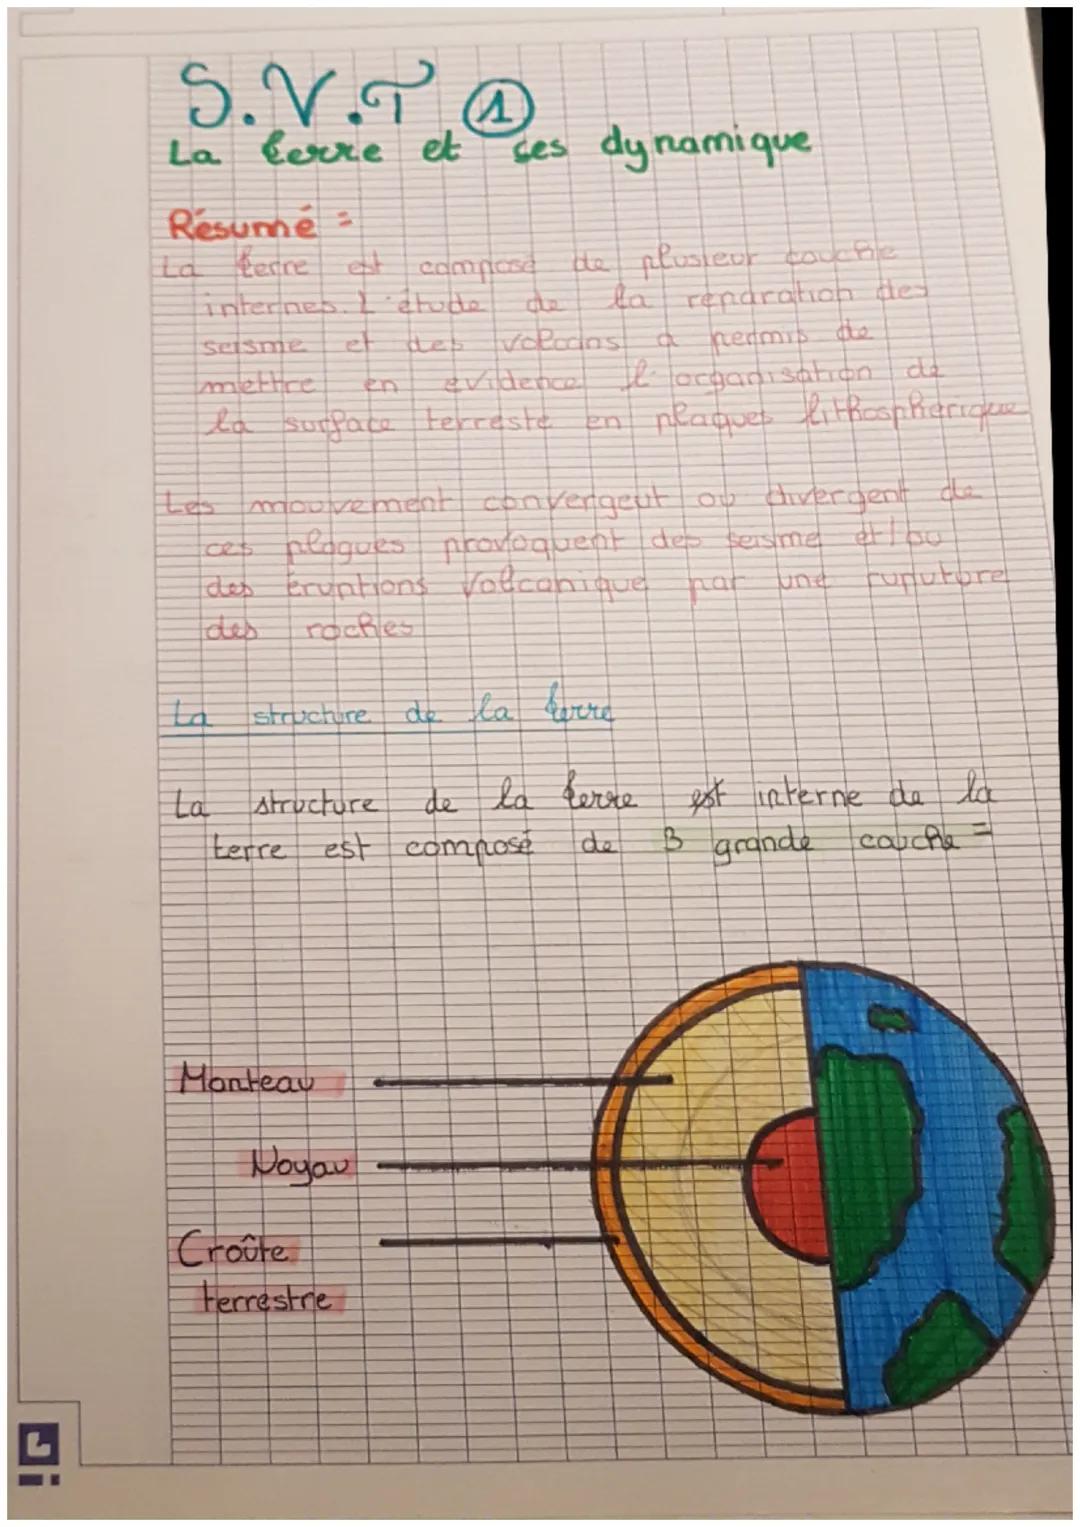 S.V.T ①
La terre et ses dynamique
Résumé =
La terre est composé de plusieur couche
internes. L'étude de la reparation des
seisme et des volcans a permis de
mettre en evidence l'organisation de
la surface terreste en plaques lithospherique
Les mouvement convergeut ou divergent de
ces plaques provoquent des seisme et/ou
des eruptions volcanique par une
des roches
La structure de la terre
La structure de la terre est interne de la
terre est composé de 3 grande couche =
Manteau
Noyau
Croûte
terrestre